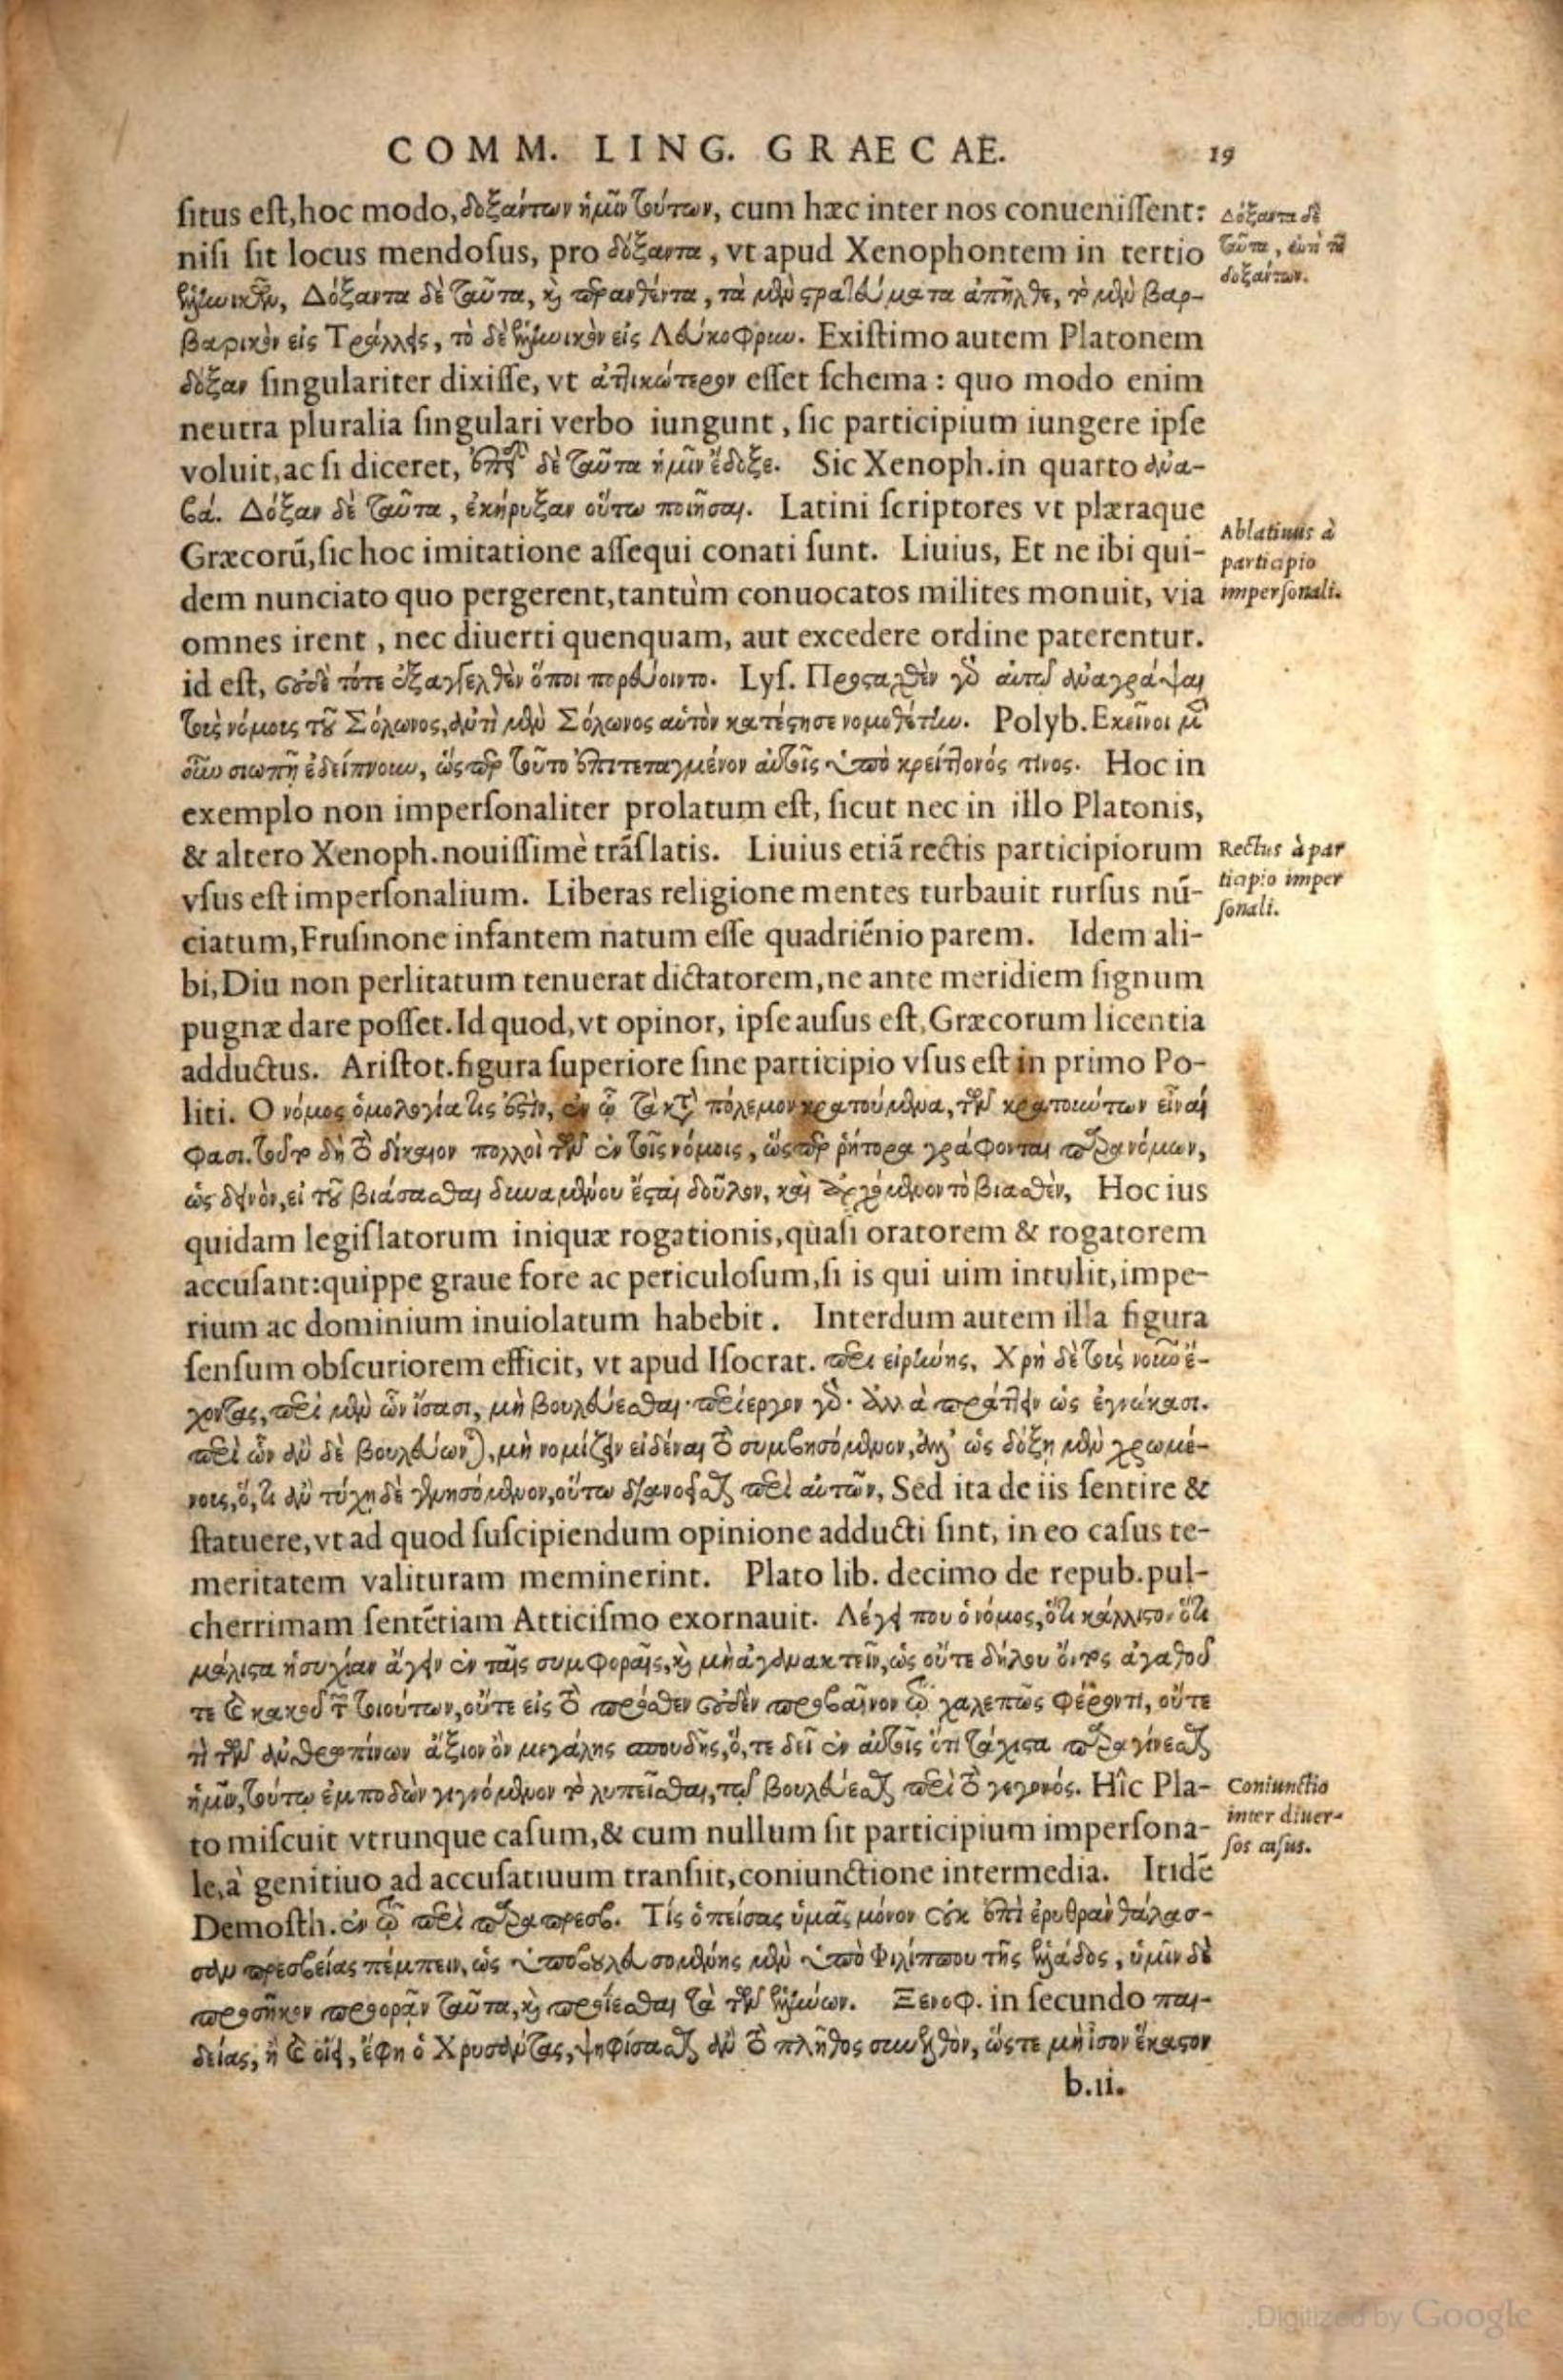 COMM. LING. GRAECAE. 19
situs est, hoc modo, δοξάντων ἡμῖν τούτων, cum hæc inter nos conuenissent:
nisi sit locus mendosus, pro δόξαντα, vt apud Xenophontem in tertio
ἑλληνικῶν, Δόξαντα δὲ ταῦτα, καὶ περανθέντα, τὰ μὲν στρατεύματα ἀπῆλθε, τὸ μὲν βαρ-
βαρικὸν εἰς Τράλλεις, τὸ δὲ ἑλληνικὸν εἰς Λεύκοφρυν. Existimo autem Platonem
δόξαν singulariter dixisse, vt ἀττικώτερον esset schema: quo modo enim
neutra pluralia singulari verbo iungunt, sic participium iungere ipse
voluit, ac si diceret, δὲ ταῦτα ἡμῖν ἔδοξε. Sic Xenoph. in quarto ἀνα-
βά. Δόξαν δὲ ταῦτα, ἐκήρυξαν οὕτω ποιῆσαι. Latini scriptores vt plæraque
Græcorū, sic hoc imitatione assequi conati sunt. Liuius, Et ne ibi qui-
dem nunciato quo pergerent, tantùm conuocatos milites monuit, via
omnes irent, nec diuerti quenquam, aut excedere ordine paterentur.
id est, οὐδὲ τότε ἐξαγγελθὲν ὅποι πορεύοιντο. Lys. Προσταχθὲν γὰρ αὐτῷ ἀναγράψαι
τοὺς νόμους τοῦ Σόλωνος, ἀντὶ μὲν Σόλωνος αὑτὸν κατέστησε νομοθέτην. Polyb. Ἐκεῖνοι μὲν
οὖν σιωπῇ ἐδείπνουν, ὥσπερ τοῦτο ἐπιτεταγμένον αὐτοῖς ὑπὸ κρείττονός τινος. Hoc in
exemplo non impersonaliter prolatum est, sicut nec in illo Platonis,
& altero Xenoph. nouissimè trāslatis. Liuius etiā rectis participiorum
vsus est impersonalium. Liberas religione mentes turbauit rursus nū-
ciatum, Frusinone infantem natum esse quadriēnio parem. Idem ali-
bi, Diu non perlitatum tenuerat dictatorem, ne ante meridiem signum
pugnæ dare posset. Id quod, vt opinor, ipse ausus est, Græcorum licentia
adductus. Aristot. figura superiore sine participio vsus est in primo Po-
liti. Ὁ νόμος ὁμολογία τις ἐστὶν, ἐν ᾧ τὰ κατὰ πόλεμον κρατούμενα, τῶν κρατούντων εἶναί
φασι. τοῦτο δὴ τὸ δίκαιον πολλοὶ τῶν ἐν τοῖς νόμοις, ὥσπερ ῥήτορα γράφονται παρανόμων,
ὡς δεινὸν, εἰ τοῦ βιάσασθαι δυναμένου ἔσται δοῦλον, καὶ ἀρχόμενον τὸ βιασθὲν, Hoc ius
quidam legislatorum iniquæ rogationis, quasi oratorem & rogatorem
accusant: quippe graue fore ac periculosum, si is qui uim intulit, impe-
rium ac dominium inuiolatum habebit. Interdum autem illa figura
sensum obscuriorem efficit, vt apud Isocrat. περὶ εἰρήνης, Χρὴ δὲ τοὺς νοῦν ἔ-
χοντας, περὶ μὲν ὧν ἴσασι, μὴ βουλεύεσθαι· περίεργον γάρ· ἀλλὰ πράττειν ὡς ἐγνώκασι.
περὶ ὧν ἂν δὲ βουλεύωνται, μὴ νομίζειν εἰδέναι τὸ συμβησόμενον, ἀλλ' ὡς δόξῃ μὲν χρωμέ-
νους, ὅ,τι ἂν τύχῃ δὲ γενησόμενον, οὕτω διανοεῖσθαι περὶ αὐτῶν, Sed ita de iis sentire &
statuere, vt ad quod suscipiendum opinione adducti sint, in eo casus te-
meritatem valituram meminerint. Plato lib. decimo de repub. pul-
cherrimam sentētiam Atticismo exornauit. Λέγει που ὁ νόμος, ὅτι κάλλιστον ὅτι
μάλιστα ἡσυχίαν ἄγειν ἐν ταῖς συμφοραῖς, καὶ μὴ ἀγανακτεῖν, ὡς οὔτε δήλου ὄντος ἀγαθοῦ
τε καὶ κακοῦ τῶν τοιούτων, οὔτε εἰς τὸ πρόσθεν οὐδὲν προβαῖνον τῷ χαλεπῶς φέροντι, οὔτε
τι τῶν ἀνθρωπίνων ἄξιον ὂν μεγάλης σπουδῆς, ὅ,τε δεῖ ἐν αὐτοῖς ὅτι τάχιστα παραγίνεσθαι
ἡμῖν, τούτῳ ἐμποδὼν γιγνόμενον τὸ λυπεῖσθαι, τῷ βουλεύεσθαι περὶ τὸ γεγονός. Hîc Pla-
to miscuit vtrunque casum, & cum nullum sit participium impersona-
le, à genitiuo ad accusatiuum transiit, coniunctione intermedia. Itidē
Demosth. ἐν τῷ περὶ παραπρεσβ. Τίς ὁ πείσας ὑμᾶς μόνον οὐκ ἐπὶ ἐρυθρὰν θάλασ-
σαν πρεσβείας πέμπειν, ὡς ἐπιβουλευομένης μὲν ὑπὸ Φιλίππου τῆς ἑλλάδος, ὑμῖν δὲ
προσῆκον προορᾶν ταῦτα, καὶ προΐεσθαι τὰ τῶν ἑλλήνων. Ξενοφ. in secundo παι-
δείας, ἢ καὶ οἴει, ἔφη ὁ Χρυσάντας, ψηφίσασθαι ἂν τὸ πλῆθος συνελθὸν, ὥστε μὴ ἴσον ἕκαστον
b.ii.
Δόξαντα δὲ
ταῦτα,
δοξάντων.
Ablatiuus à
participio
impersonali.
Rectus à par
ticipio imper
sonali.
Coniunctio
inter diuer-
sos casus.
Digitized by Google